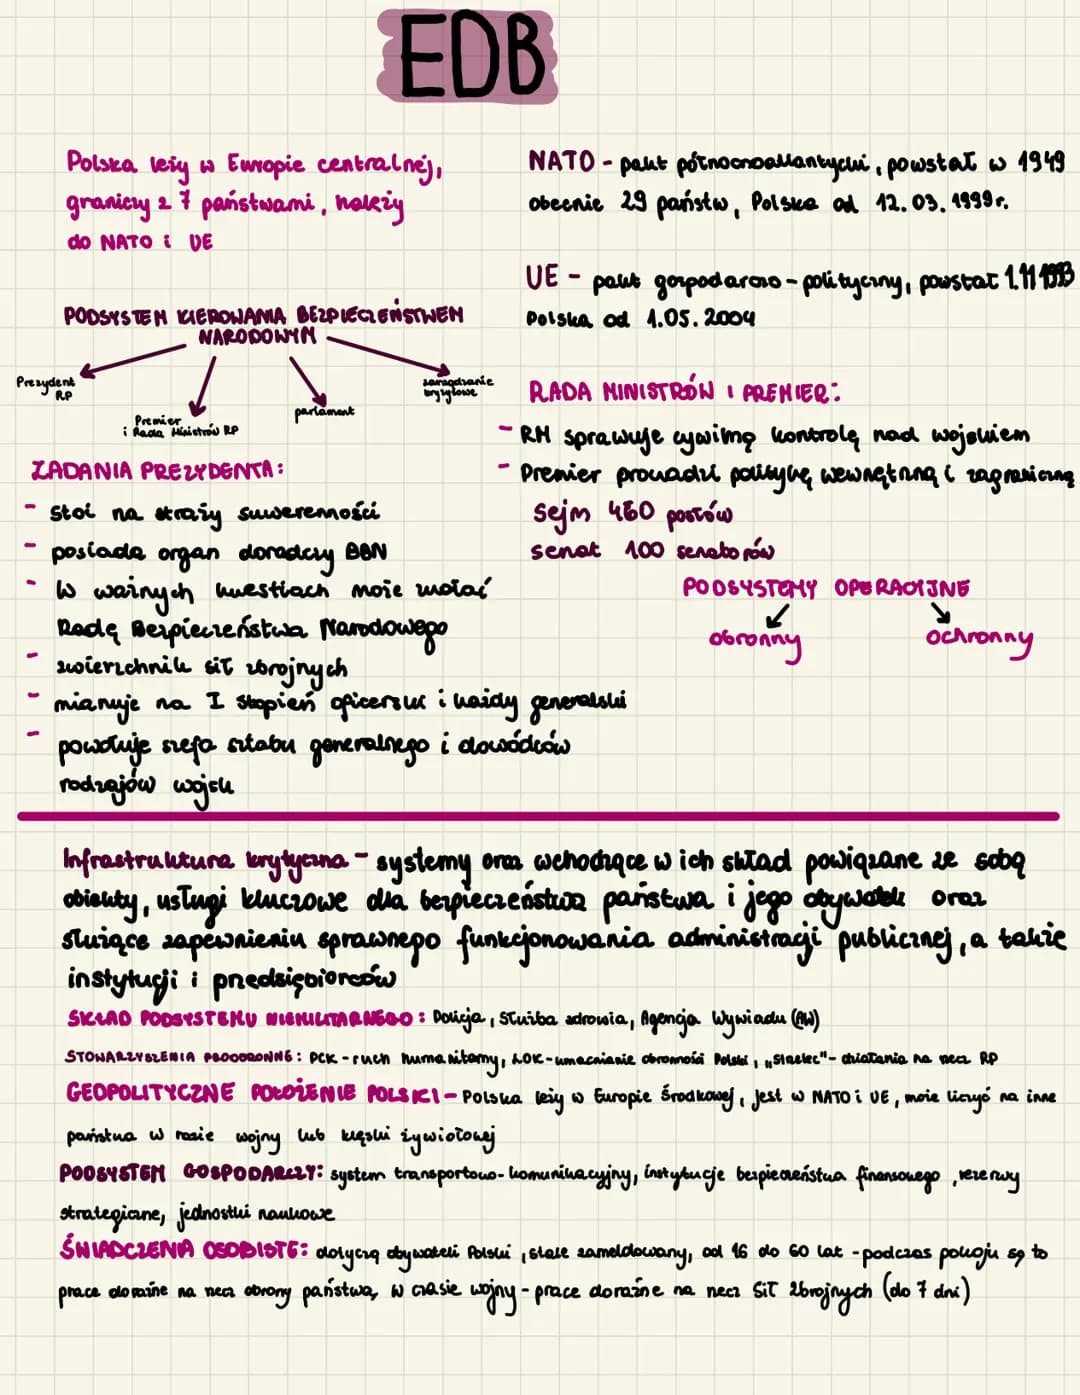 EDB
Polska leży w Europie centralnej,
graniczy z 7 państwami, należy
do NATO i UE
PODSYSTEM KIEROWANIA BEZPIECZEŃSTWEM
NARODOWYM
Prezydent
RP
Premier
i Rada Ministrów RP
parlament
zarządzanie
kryzysowe
ZADANIA PREZYDENTA:
- stoi na straży suwerenności
- posiada organ doradczy BBN
- W ważnych kwestiach może zwołać
Radę Bezpieczeństwa Narodowego
- zwierzchnik sił zbrojnych
- mianuje na I stopień oficerski i każdy generalski
- powołuje szefa sztabu generalnego i dowódców
rodzajów wojsk
NATO - pakt północnoatlantycki, powstał w 1949
obecnie 29 państw, Polska od 12.03.1999r.
UE - pakt gospodarczo-polityczny, powstał 1.11 1993
Polska od 1.05.2004
RADA MINISTRÓW I PREMIER:
- RM sprawuje cywilną kontrolę nad wojskiem
- Premier prowadzi politykę wewnętrzną i zagraniczną
Sejm 460 posłów
senat 100 senatorów
PODSYSTEMY OPERACYJNE
obronny
ochronny
Infrastruktura krytyczna - systemy oraz wchodzące w ich skład powiązane ze sobą
obiekty, usługi kluczowe dla bezpieczeństwa państwa i jego obywateli oraz
służące zapewnieniu sprawnego funkcjonowania administracji publicznej, a także
instytucji i przedsiębiorców
SKŁAD PODSYSTEMU NIEMILITARNEGO: Policja, Służba zdrowia, Agencja Wywiadu (AW)
STOWARZYSZENIA PROOBRONNE: PCK - ruch humanitarny, LOK - umacnianie obronności Polski, „Strzelec" - działania na rzecz RP
GEOPOLITYCZNE POŁOŻENIE POLSKI - Polska leży w Europie Środkowej, jest w NATO i UE, może liczyć na inne
państwa w razie wojny lub klęski żywiołowej
PODSYSTEM GOSPODARCZY: system transportowo-komunikacyjny, instytucje bezpieczeństwa finansowego, rezerwy
strategiczne, jednostki naukowe
ŚWIADCZENIA OSOBISTE: dotyczą obywateli Polski, stale zameldowany, od 16 do 60 lat - podczas pokoju są to
prace doraźne na rzecz obrony państwa, w czasie wojny - prace doraźne na rzecz Sił Zbrojnych (do 7 dni)